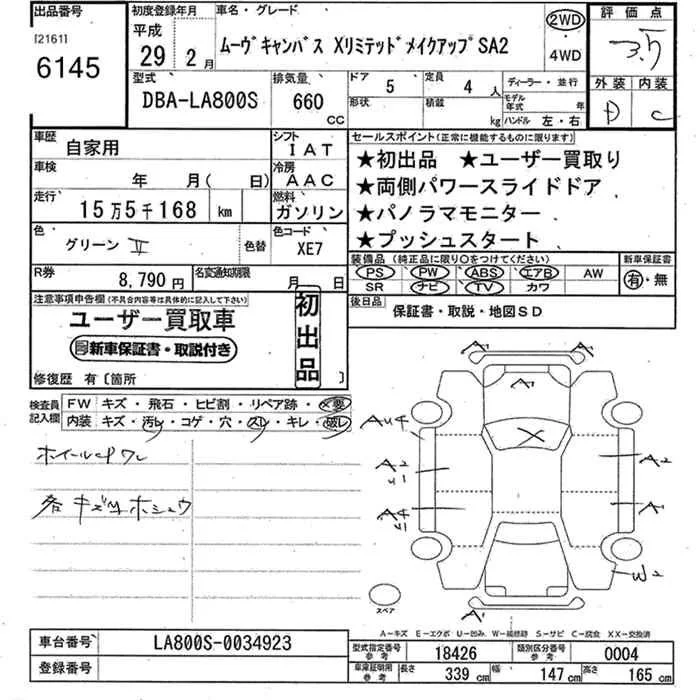 出品番号
[2161]
6145
初度登録年月
平成
29 2月
車名・グレード
ムーヴキャンバス Xリミテッドメイクアップ SA2
2WD
・
4WD
評価点
3.5
外装 内装
D C
型式
DBA-LA800S
排気量
660
CC
ドア 5
形状
定員 4 人
積載 kg
ディーラー・並行
モデル年式 年
ハンドル 左・右
車歴 自家用
シフト IAT
車検 年 月( 日)
冷房 AAC
走行 15万5千168 km
燃料 ガソリン
色 グリーンⅡ 色替
色コード XE7
R券 8,790円
名変通知期限 月 日
セールスポイント(正常に機能するものに限ります)
★初出品 ★ユーザー買取り
★両側パワースライドドア
★パノラマモニター
★プッシュスタート
装備品(純正品に限り○をつけてください)
PS PW ABS エアB AW
SR ナビ TV カワ
新車保証書
有・無
後日品
保証書・取説・地図SD
注意事項申告欄(不具合内容等は具体的に記入して下さい)
ユーザー買取車
新車保証書・取説付き
初出品
修復歴 有〔箇所 〕
検査員記入欄
FW キズ・飛石・ヒビ割・リペア跡・×要
内装 キズ・汚レ・コゲ・穴・スレ・キレ・破レ
各キズ ホシュウ
A1 A1
A1
AU4
X
A2
U1
A2
A4
U1
A1
W2
A1
スペア
A−キズ E−エクボ U−凹み W−補修跡 S−サビ C−腐食 XX−交換済
車台番号 LA800S-0034923
登録番号
型式指定番号 参考 18426
類別区分番号 参考 0004
車庫証明用 参考 長さ 339 cm 幅 147 cm 高さ 165 cm